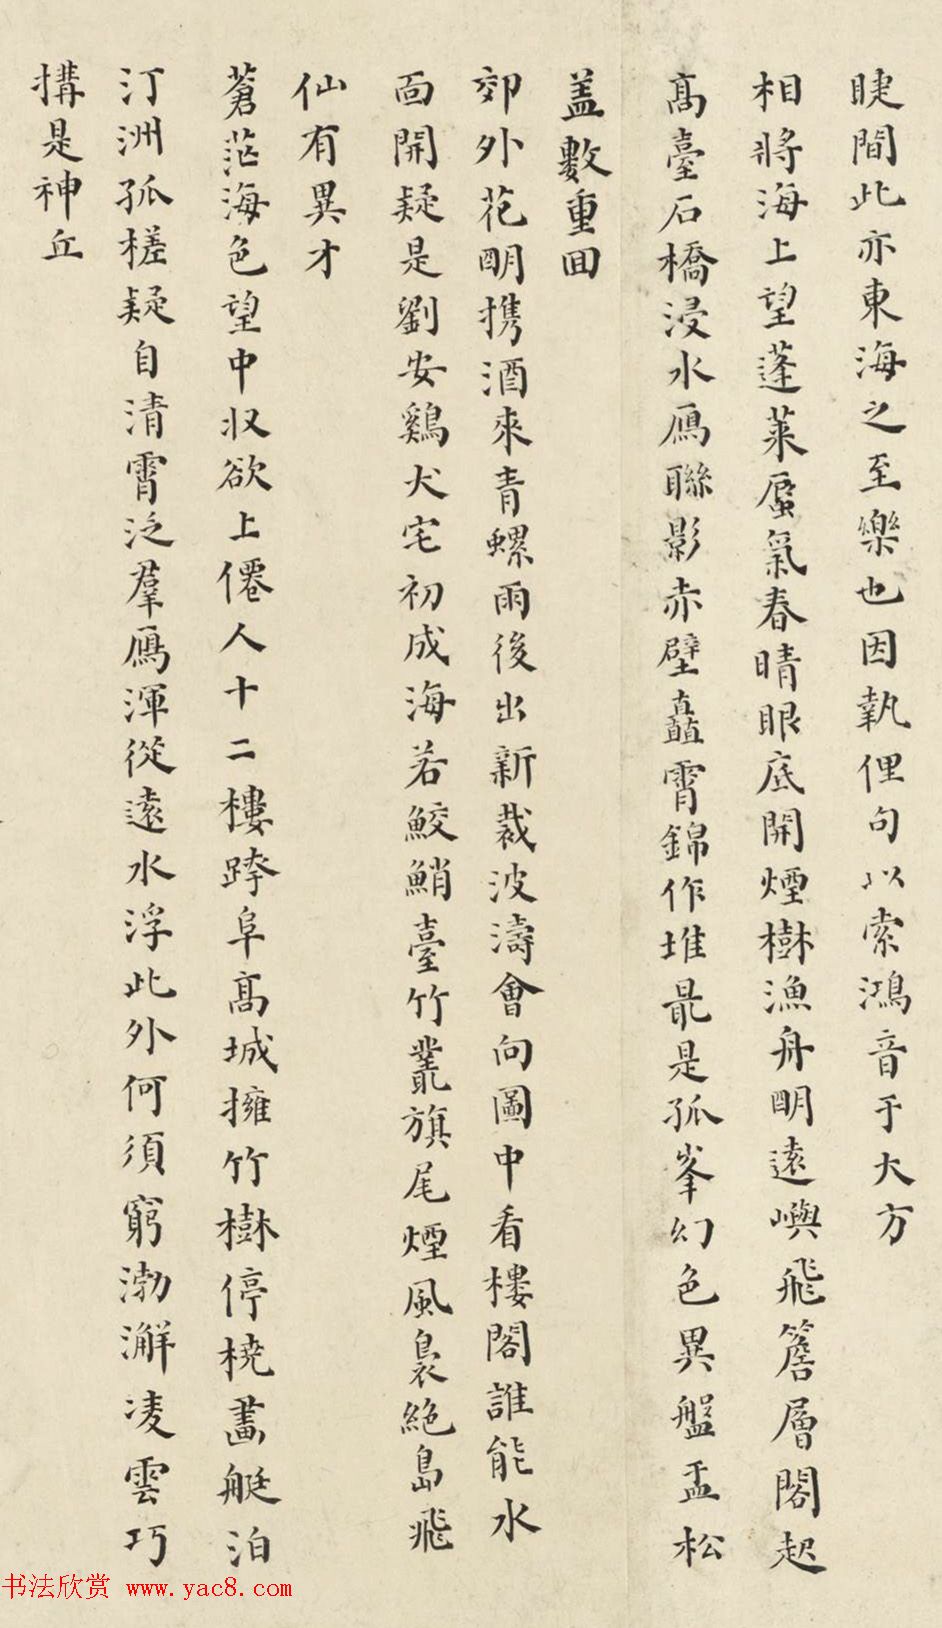 睫間此亦東海之至樂也因執俚句以索鴻音于大方
相將海上望蓬萊蜃氣春晴眼底開煙樹漁舟明遠嶼飛簷層閣起
髙臺石橋浸水鴈聯影赤壁矗霄錦作堆最是孤峯幻色異盤盂松
盖數重囬
郊外花明携酒來青螺雨後出新裁波濤會向圖中看樓閣誰能水
面開疑是劉安鷄犬宅初成海若鮫鮹臺竹叢旗尾煙風裊絶島飛
仙有異才
蒼茫海色望中収欲上僊人十二樓跨阜髙城擁竹樹停橈畵艇泊
汀洲孤槎疑自清霄泛羣鴈渾從遠水浮此外何須窮渤澥凌雲巧
搆是神丘
书法欣赏 www.yac8.com